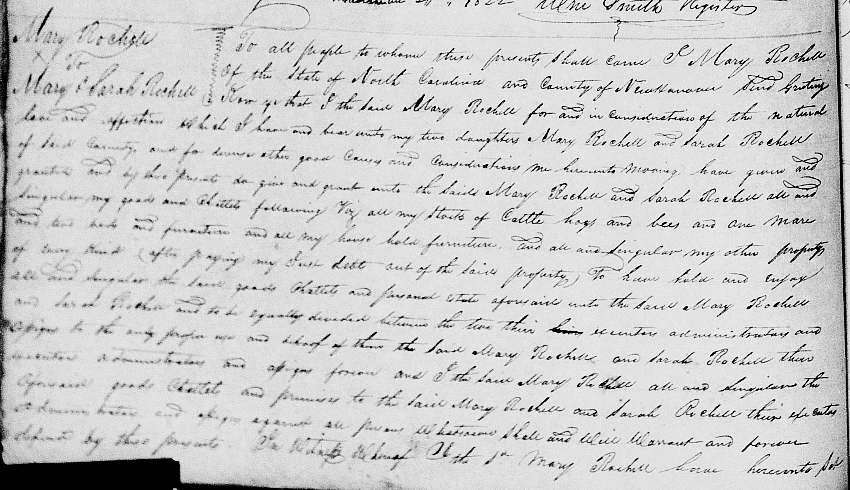 1822 Wm Smith Register
Mary Rochell
To
Mary & Sarah Rochell
To all people to whome these presents Shall come I Mary Rochell
Of the State of North Carolina and County of Newhanover Send Greting
Know ye that I the said Mary Rochell for and in consideration of the natural
love and affection which I have and bear unto my two daughters Mary Rochell and Sarah Rochell
of said County, and for diverse other good Causes and Considerations me hereunto mooving have given and
granted and by these presents do give and grant unto the Saids Mary Rochell and Sarah Rochell all and
Singular my goods and Chattels following Viz all my Stock of Cattle hogs and bees and one mare
and two beds and furniture and all my house hold furniture, and all and Singular my other property
of every kind (after paying my Just debt out of the Said property) To have hold and enjoy
all and Singular the Said goods Chattels and personal estate aforesaid unto the Said Mary Rochell
and Sarah Rochell and to be equally divided between the two their executors administrators and
assigns to the only proper use and behoof of them the Said Mary Rochell, and Sarah Rochell their
executors administrators and assigns forever and I the Said Mary Rochell all and Singular the
aforesaid goods Chattel and premises to the Said Mary Rochell and Sarah Rochell their executors
administrators and assigns against all persons Whatsoever Shall and Will Warrant and forever
defend by these presents. In Witness Whereof I the Sd Mary Rochell have hereunto Set